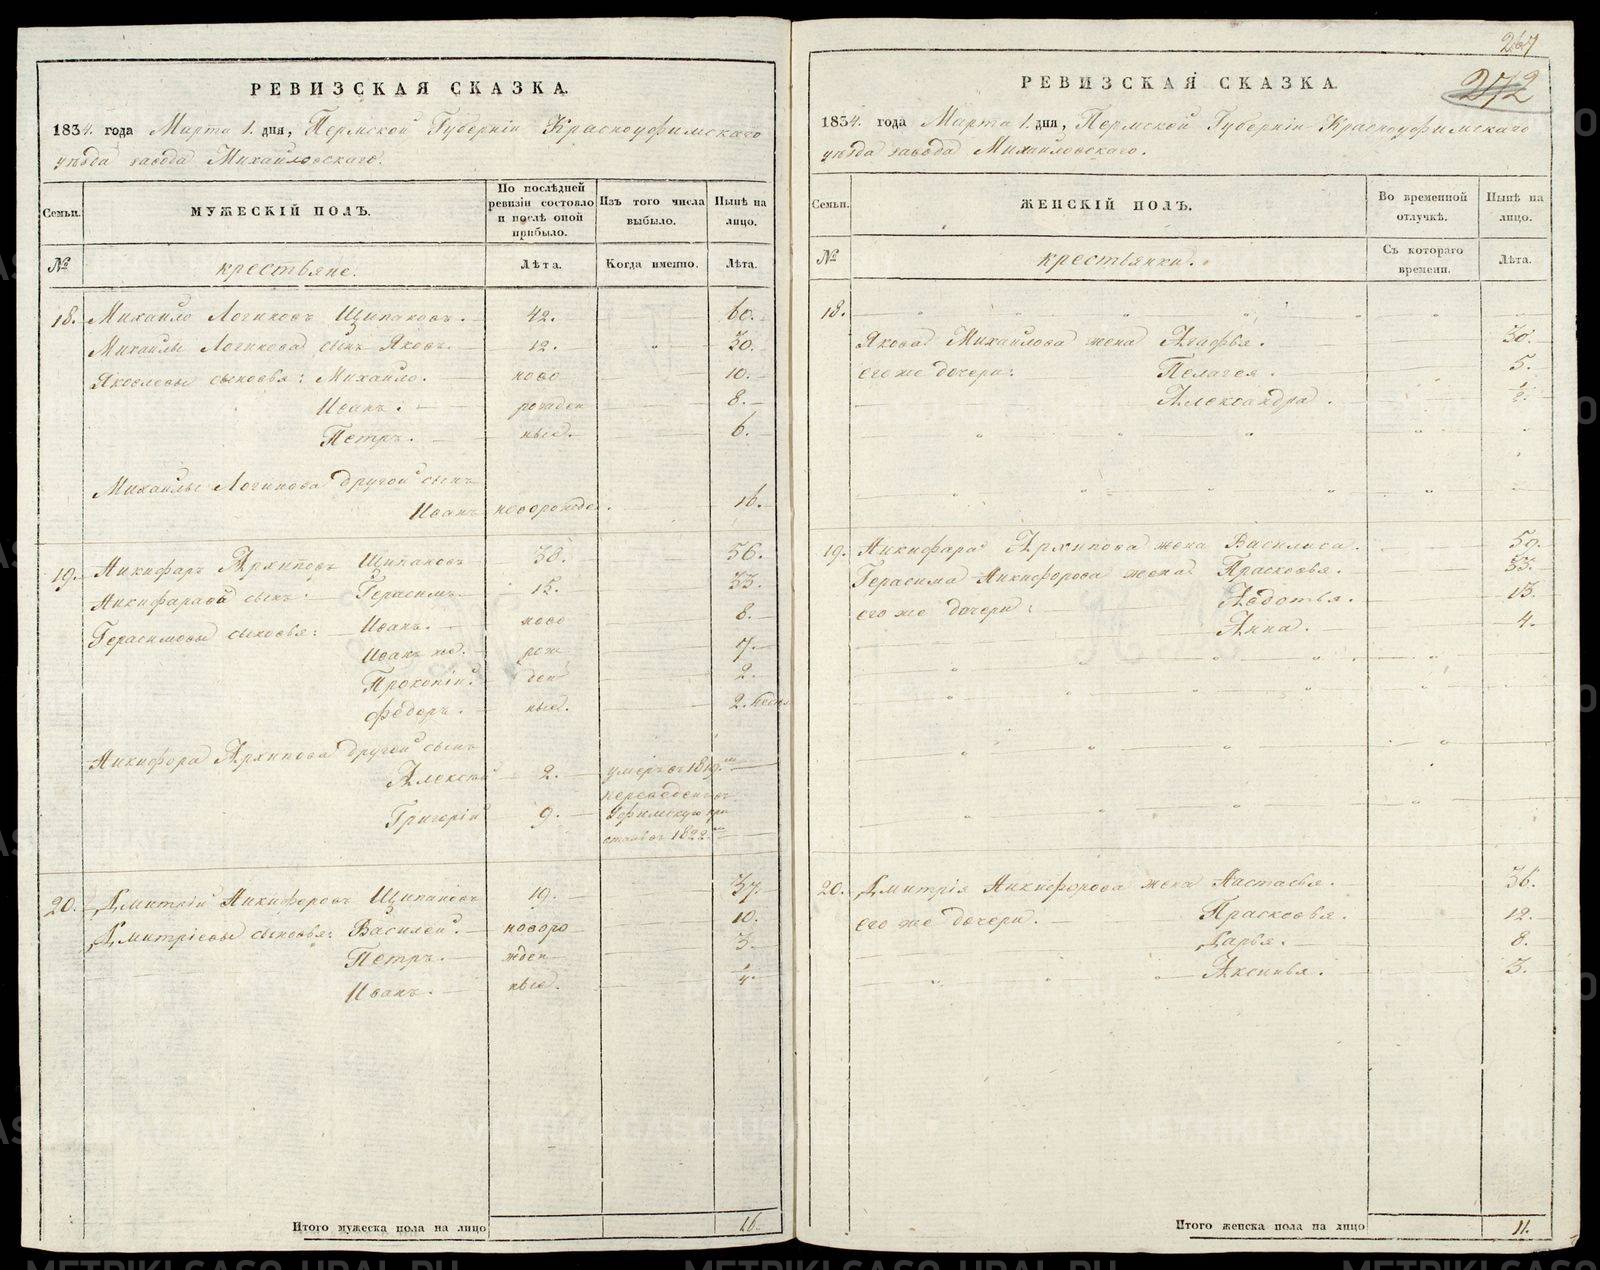 РЕВИЗСКАЯ СКАЗКА.
1834. года Марта 1. дня, Пермской Губерніи Красноуфимскаго
уѣзда завода Михайловскаго.
Семьи. МУЖЕСКІЙ ПОЛЪ. По послѣдней ревизіи состояло и послѣ оной прибыло. Изъ того числа выбыло. Нынѣ на лицо.
№ крестьяне. Лѣта. Когда именно. Лѣта.
18. Михайло Логиновъ Щипановъ. 42. 60.
Михайлы Логинова сынъ Яковъ. 12. 30.
Яковлевы сыновья: Михайло. ново 10.
Иванъ. рожден 8.
Петръ. ные. 6.
Михайлы Логинова другой сынъ
Иванъ новорожде. 16.
19. Никифаръ Архиповъ Щипановъ 38. 56.
Никифарава сынъ: Герасимъ. 15. 33.
Герасимовы сыновья: Иванъ. ново 8.
Иванъ же. рож 7.
Прокопій. ден 2.
Федоръ. ные. 2.
Никифора Архипова другой сынъ
Алексѣй 2. умеръ въ 1819.
переведенъ въ
Григорій 9. Уфимскую
1822
20. Дмитрій Никифоровъ Щипановъ 19. 37.
Дмитріевы сыновья: Василей. новоро 10.
Петръ. жден 3.
Иванъ. ные. 1/4.
Итого мужеска пола на лицо 16.
267
272
РЕВИЗСКАЯ СКАЗКА.
1834. года Марта 1. дня, Пермской Губерніи Красноуфимскаго
уѣзда завода Михайловскаго.
Семьи. ЖЕНСКІЙ ПОЛЪ. Во временной отлучкѣ. Нынѣ на лицо.
№ крестьянки. Съ котораго времени. Лѣта.
18.
Якова Михайлова жена Агафья. 30.
его же дочери: Пелагея. 5.
Александра. 1/2.
19. Никифара Архипова жена Василиса. 50.
Герасима Никифорова жена Прасковья. 33.
его же дочери: Авдотья. 13.
Анна. 4.
20. Дмитрія Никифорова жена Настасья. 36.
его же дочери. Прасковья. 12.
Дарья. 8.
Аксинья. 3.
Итого женска пола на лицо 11.
METRIKI.GASO-URAL.RU